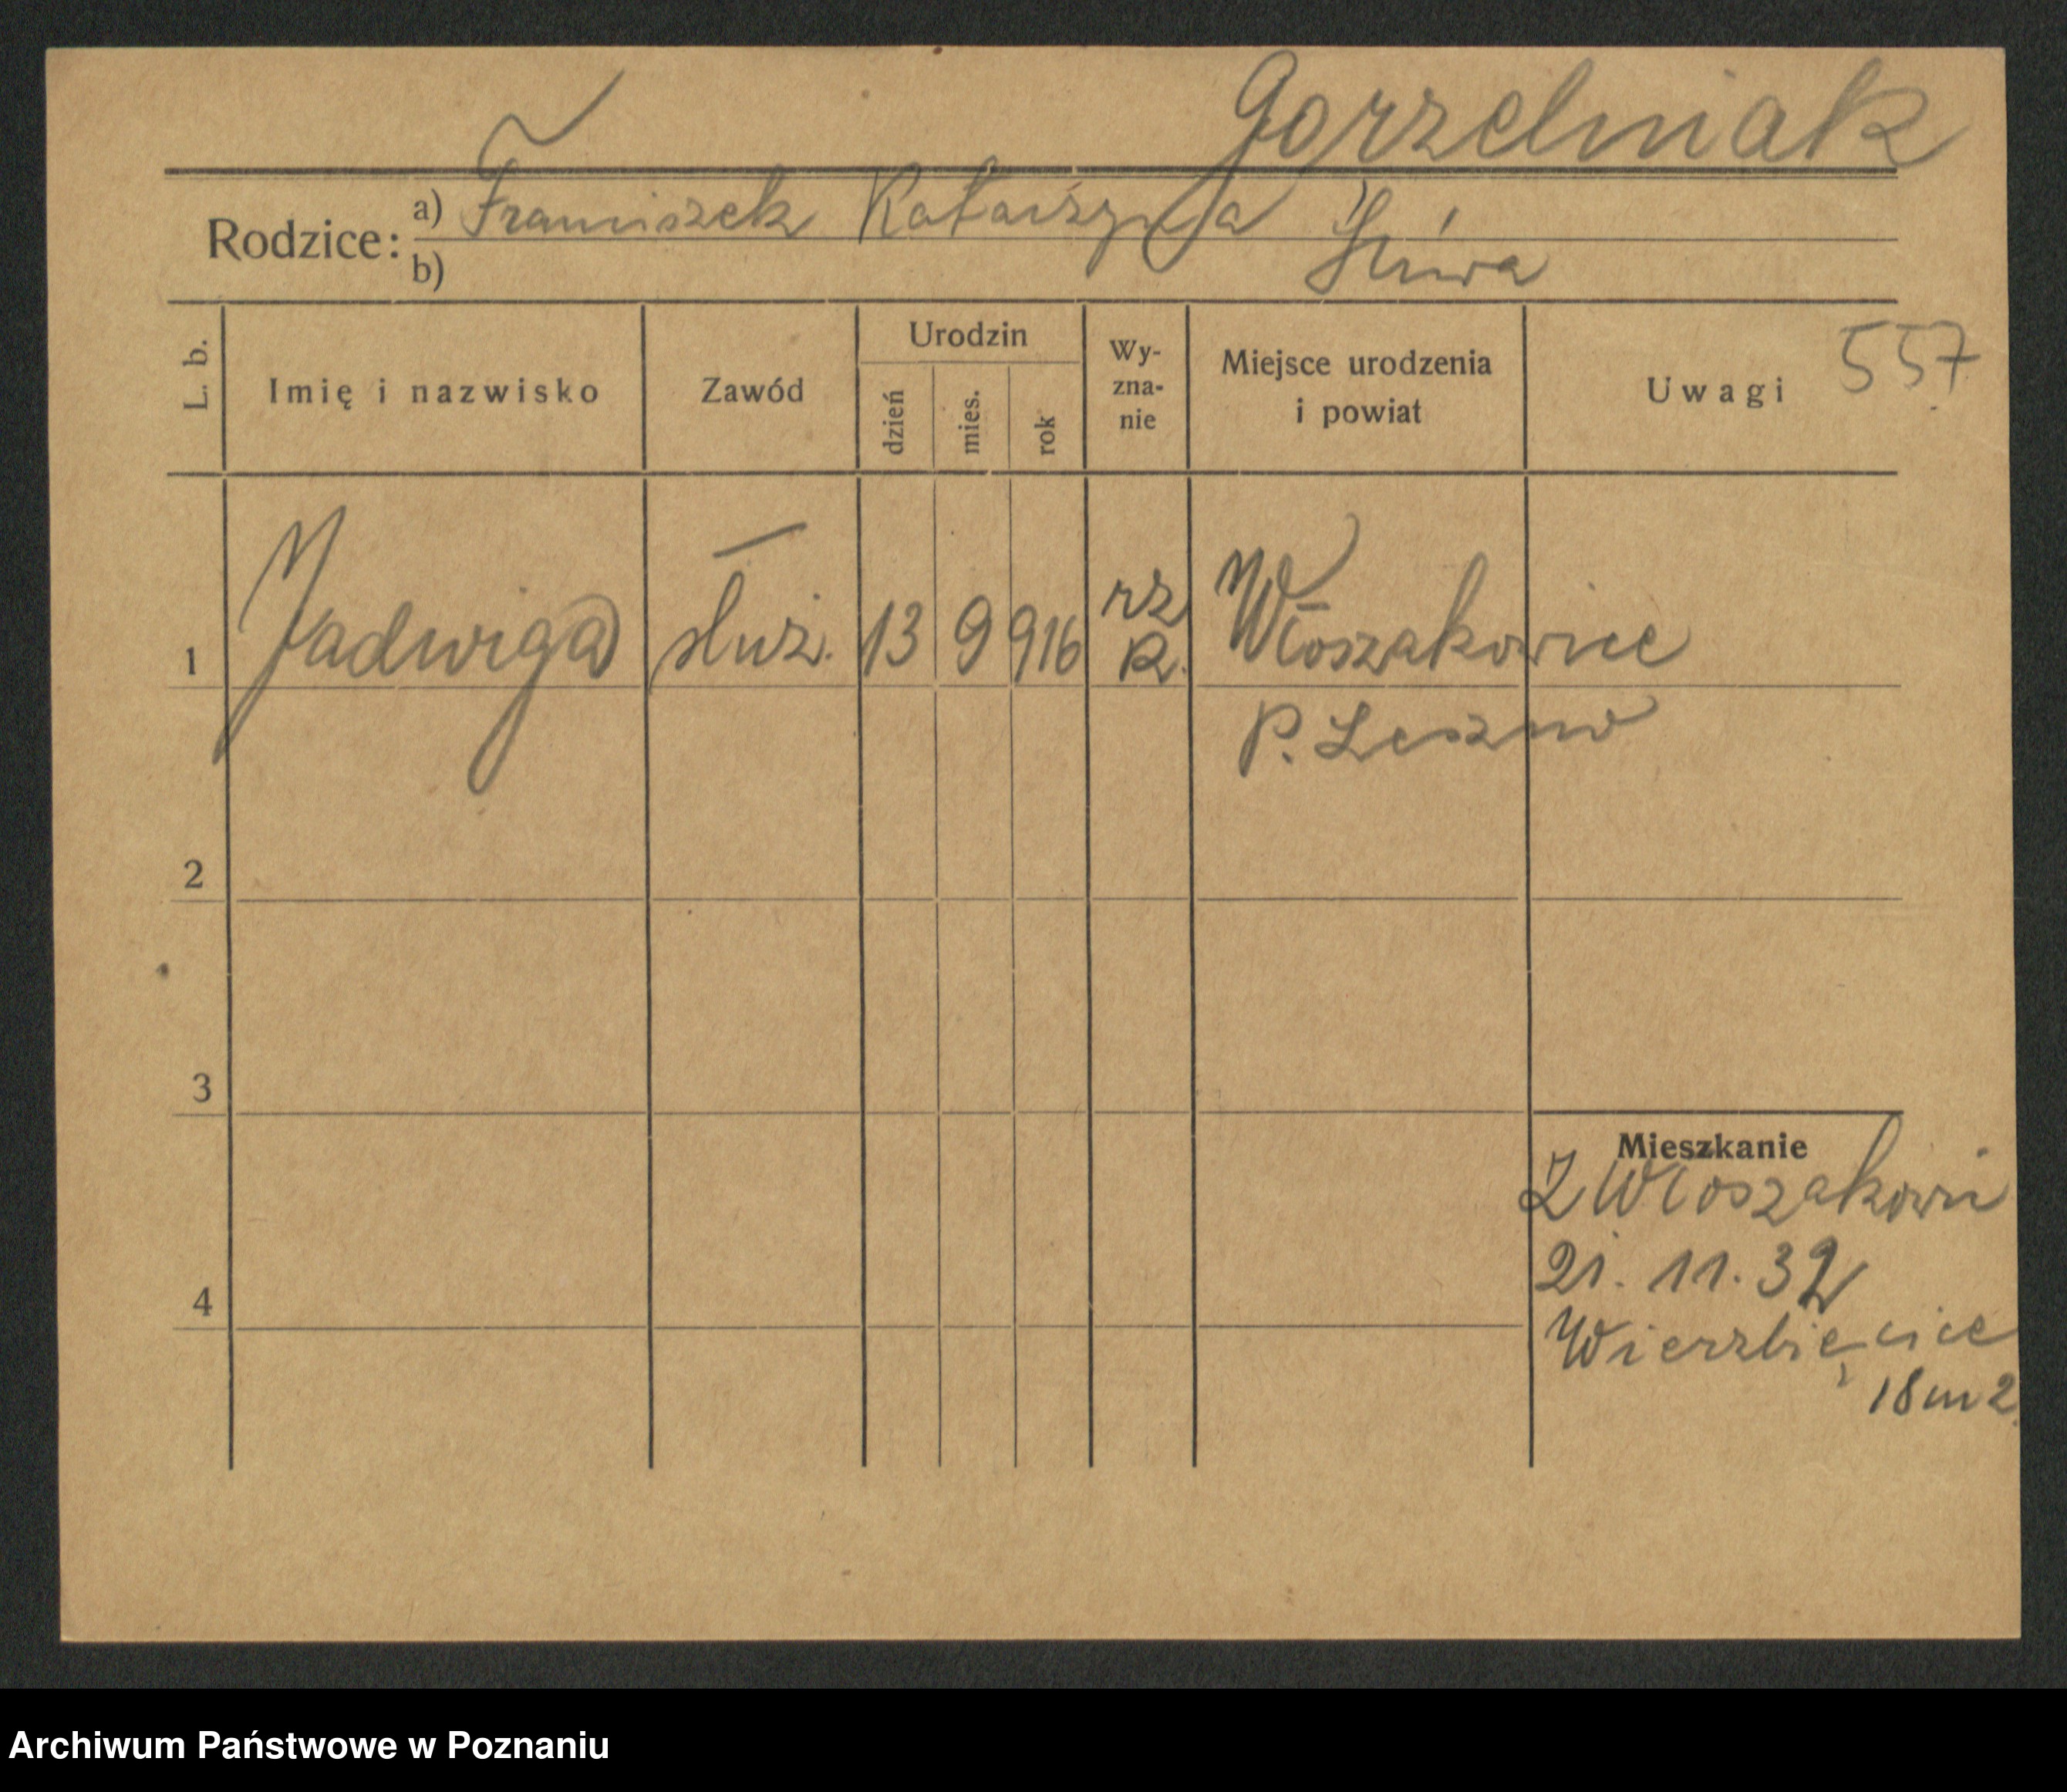 Gorzelniak
Rodzice: a) Franciszek Katarzyna
b)
L. b. Imię i nazwisko Zawód Urodzin dzień mies. rok Wy-zna-nie Miejsce urodzenia i powiat Uwagi 557
1 Jadwiga służ. 13 9 916 rz k. Włoszakowice
P. Leszno
2
3
Mieszkanie
Z Włoszakowic
21. 11. 32
4
Wierzbięcice
18 m 2.
Archiwum Państwowe w Poznaniu